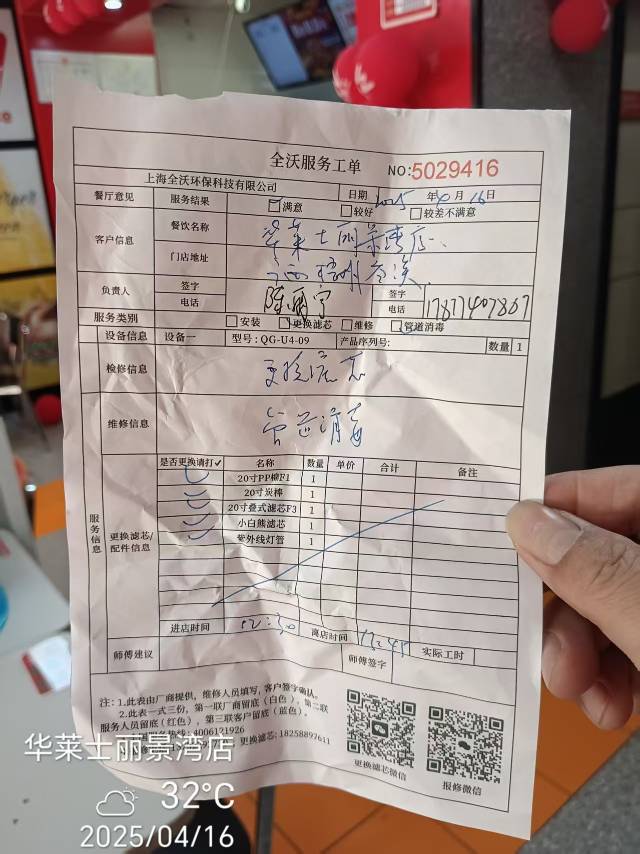 全沃服务工单
NO:5029416
上海全沃环保科技有限公司
日期 2025年4月16日
餐厅意见 服务结果 满意 较好 较差不满意
客户信息 餐饮名称 华莱士丽景湾店
门店地址
负责人 签字 签字
电话 电话 17877407867
服务类别 安装 更换滤芯 维修 管道消毒
设备信息 设备一 型号:QG-U4-09 产品序列号: 数量 1
检修信息 更换滤芯
维修信息 管道消毒
服务信息
更换滤芯/配件信息
是否更换请打✓ 名称 数量 单价 合计 备注
20寸PP棉F1 1
20寸炭棒 1
20寸叠式滤芯F3 1
小白熊滤芯 1
紫外线灯管 1
进店时间 12:30 离店时间 13:45 实际工时
师傅建议 师傅签字
注:1.此表由厂商提供,维修人员填写,客户签字确认。
2.此表一式三份,第一联厂商留底(白色),第二联
服务人员留底(红色),第三联客户留底(蓝色)。
热线:4006121926
更换滤芯:18258897611
更换滤芯微信
报修微信
华莱士丽景湾店
32°C
2025/04/16